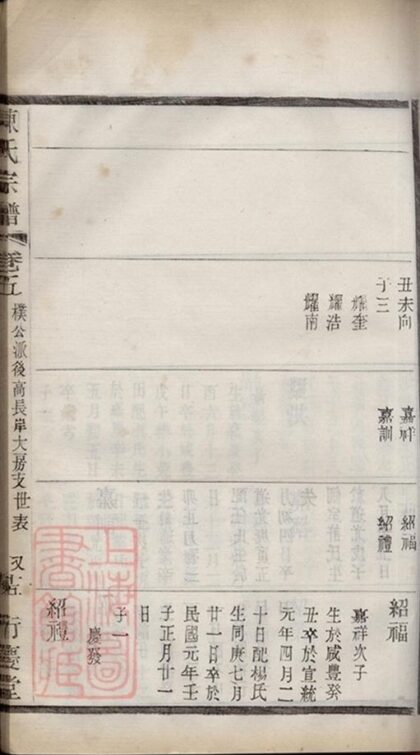 丑未向
子三
耀奎
耀浩
耀南
嘉祥
嘉訓
紹福
紹禮
紹福
嘉祥次子
生於咸豐癸
丑卒於宣統
元年四月二
十日配楊氏
生同庚七月
廿一日卒於
民國元年壬
子正月廿一
日
子一
慶發
紹禮
陳氏宗譜
卷五
樸公派後高長岸大房支世表
又
行慶堂
上海圖書館藏